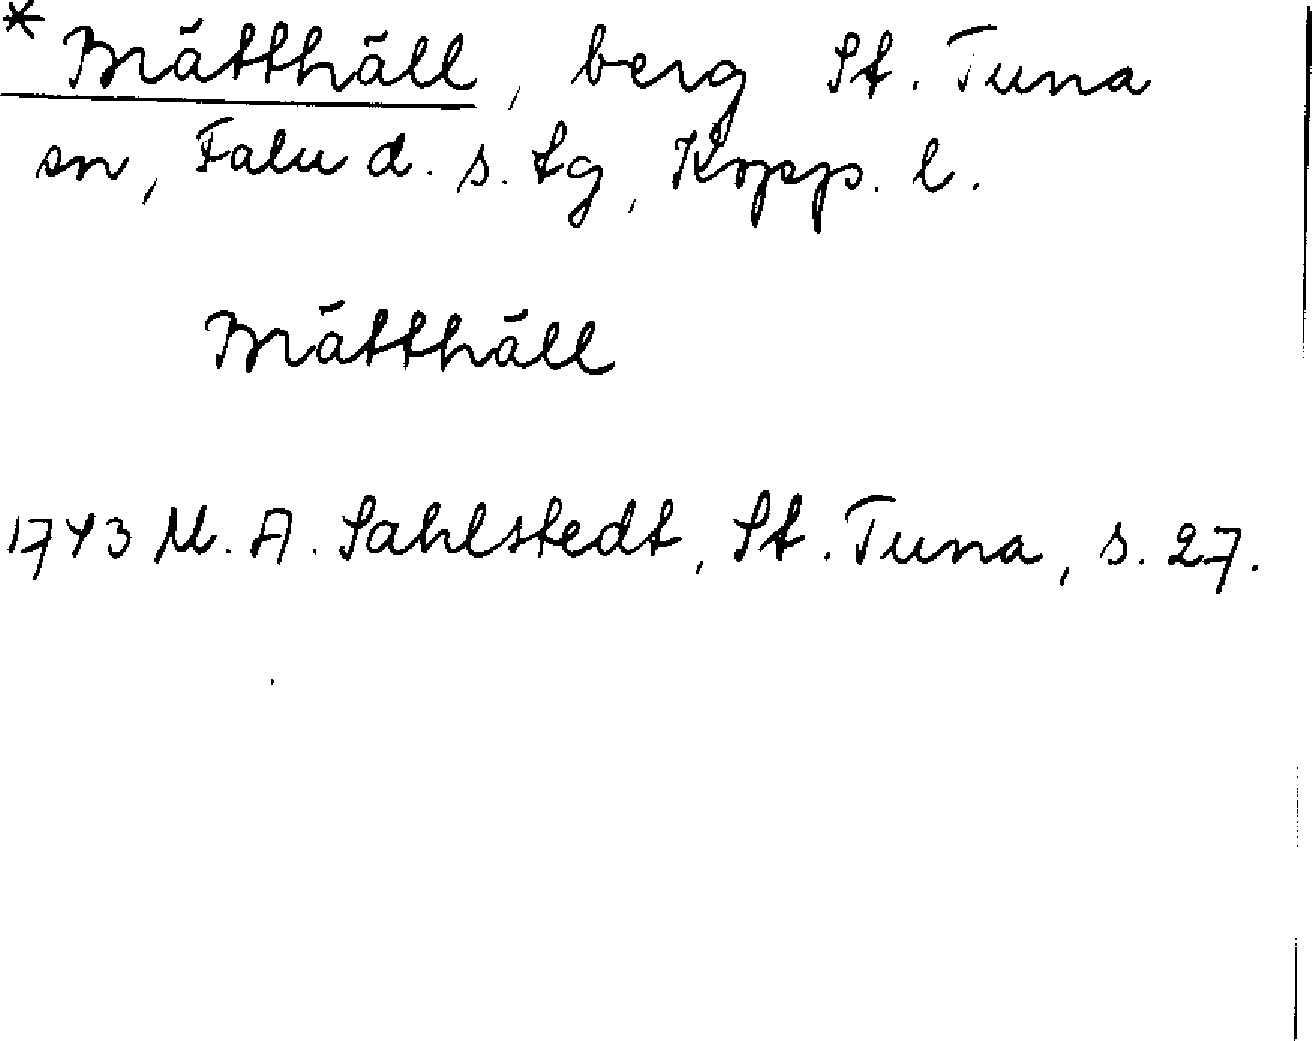 * Brätthäll, berg St. Tuna
sn, Falu d. s. tg, Kopp. l.
Brätthäll
1743 M. A. Sahlstedt, St. Tuna, s. 27.